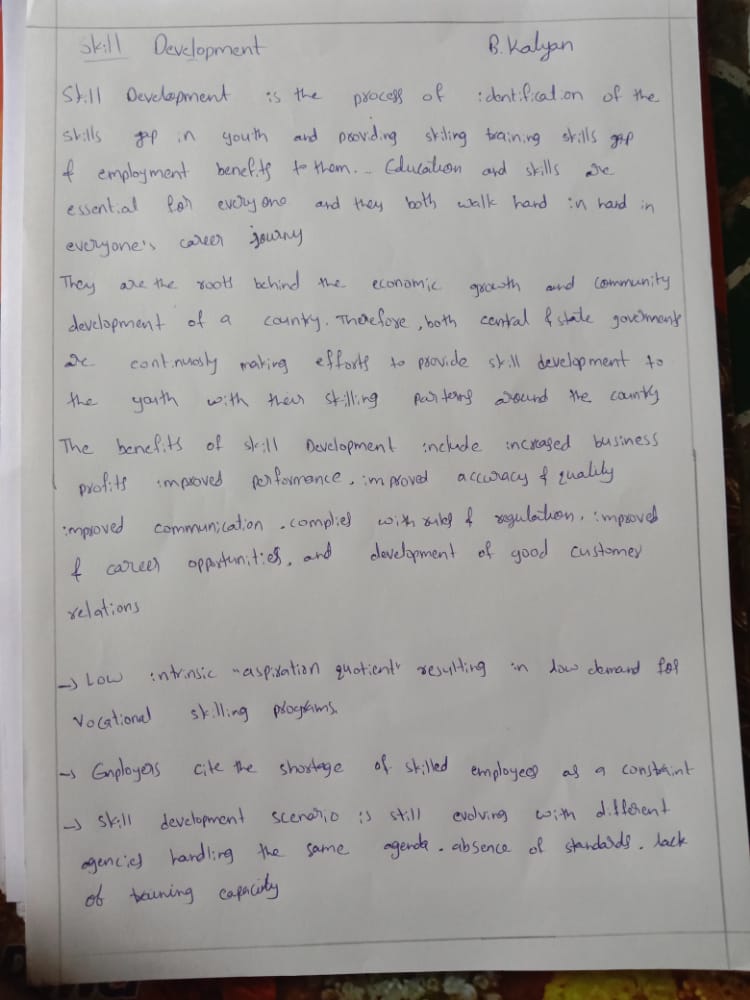 Skill Development B. Kalyan
Skill Development is the process of identification of the
skills gap in youth and providing skiling training skills gap
& employment benefits to them... Education and skills are
essential for everyone and they both walk hand in hand in
everyone's career journy
They are the roots behind the economic growth and community
development of a country. Therefore, both central & state goverments
are continuosly making efforts to provide skill development to
the youth with their skilling parterns around the country
The benefits of skill Development include increased business
profits improved performance. improved accuracy & quality
improved communication. complies with rules & regulation. improved
& career opportunities, and development of good customer
relations
→ Low intrinsic "aspiration quotient" resulting in low demand for
Vocational skilling programs.
→ Employers cite the shortage of skilled employees as a constraint
→ Skill development scenario is still evolving with different
agencies handling the same agenda. absence of standards. lack
of training capacity